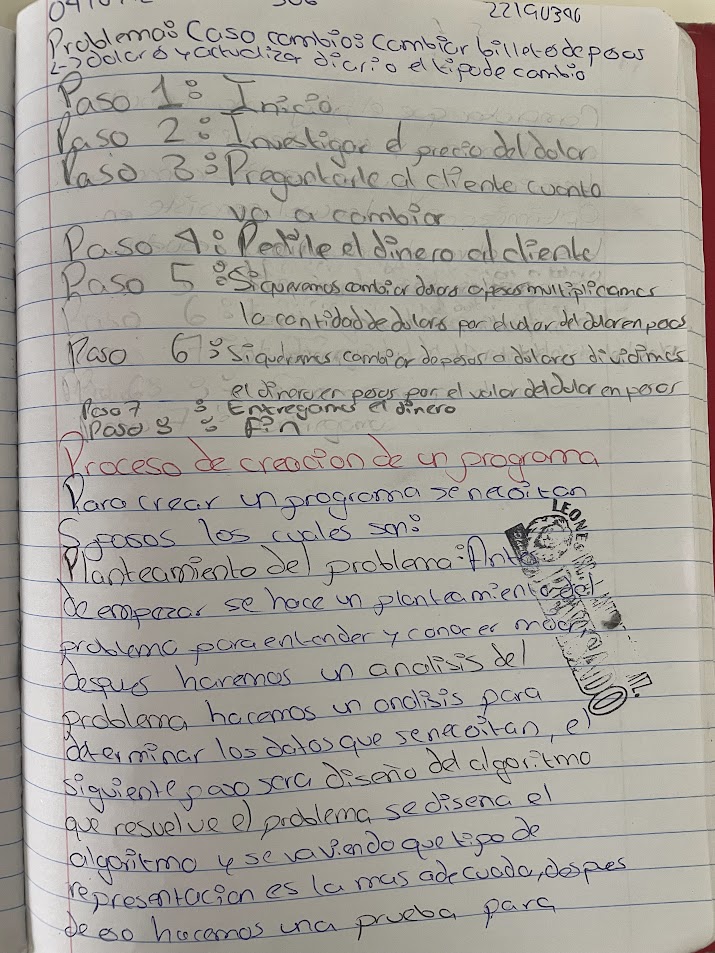 22190396
Problema: Caso cambios Cambiar billetes de pesos
↳ dolares y actualizar diario el tipo de cambio
Paso 1: Inicio
Paso 2: Investigar el precio del dolar
Paso 3: Preguntarle al cliente cuanto
va a cambiar
Paso 4: Pedirle el dinero al cliente
Paso 5: Si queremos cambiar dolares a pesos multiplicamos
la cantidad de dolares por el valor del dolar en pesos
Paso 6: Si queremos cambiar de pesos a dolares dividimos
el dinero en pesos por el valor del dolar en pesos
Paso 7: Entregamos el dinero
Paso 8: Fin
Proceso de creacion de un programa
Para crear un programa se necesitan
5 pasos los cuales son:
Planteamiento del problema: Antes
de empezar se hace un planteamiento del
problema para entender y conocer mas
despues haremos un analisis del
problema hacemos un analisis para
determinar los datos que se necesitan, el
siguiente paso sera diseño del algoritmo
que resuelve el problema se diseña el
algoritmo y se va viendo que tipo de
representacion es la mas adecuada, despues
de eso hacemos una prueba para
LEONES